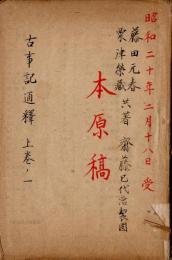 昭和二十年二月十八日 受
藤田元春
粟津榮藏 共著
齋藤已代治製図
本原稿
古事記通釋 上巻ノ一